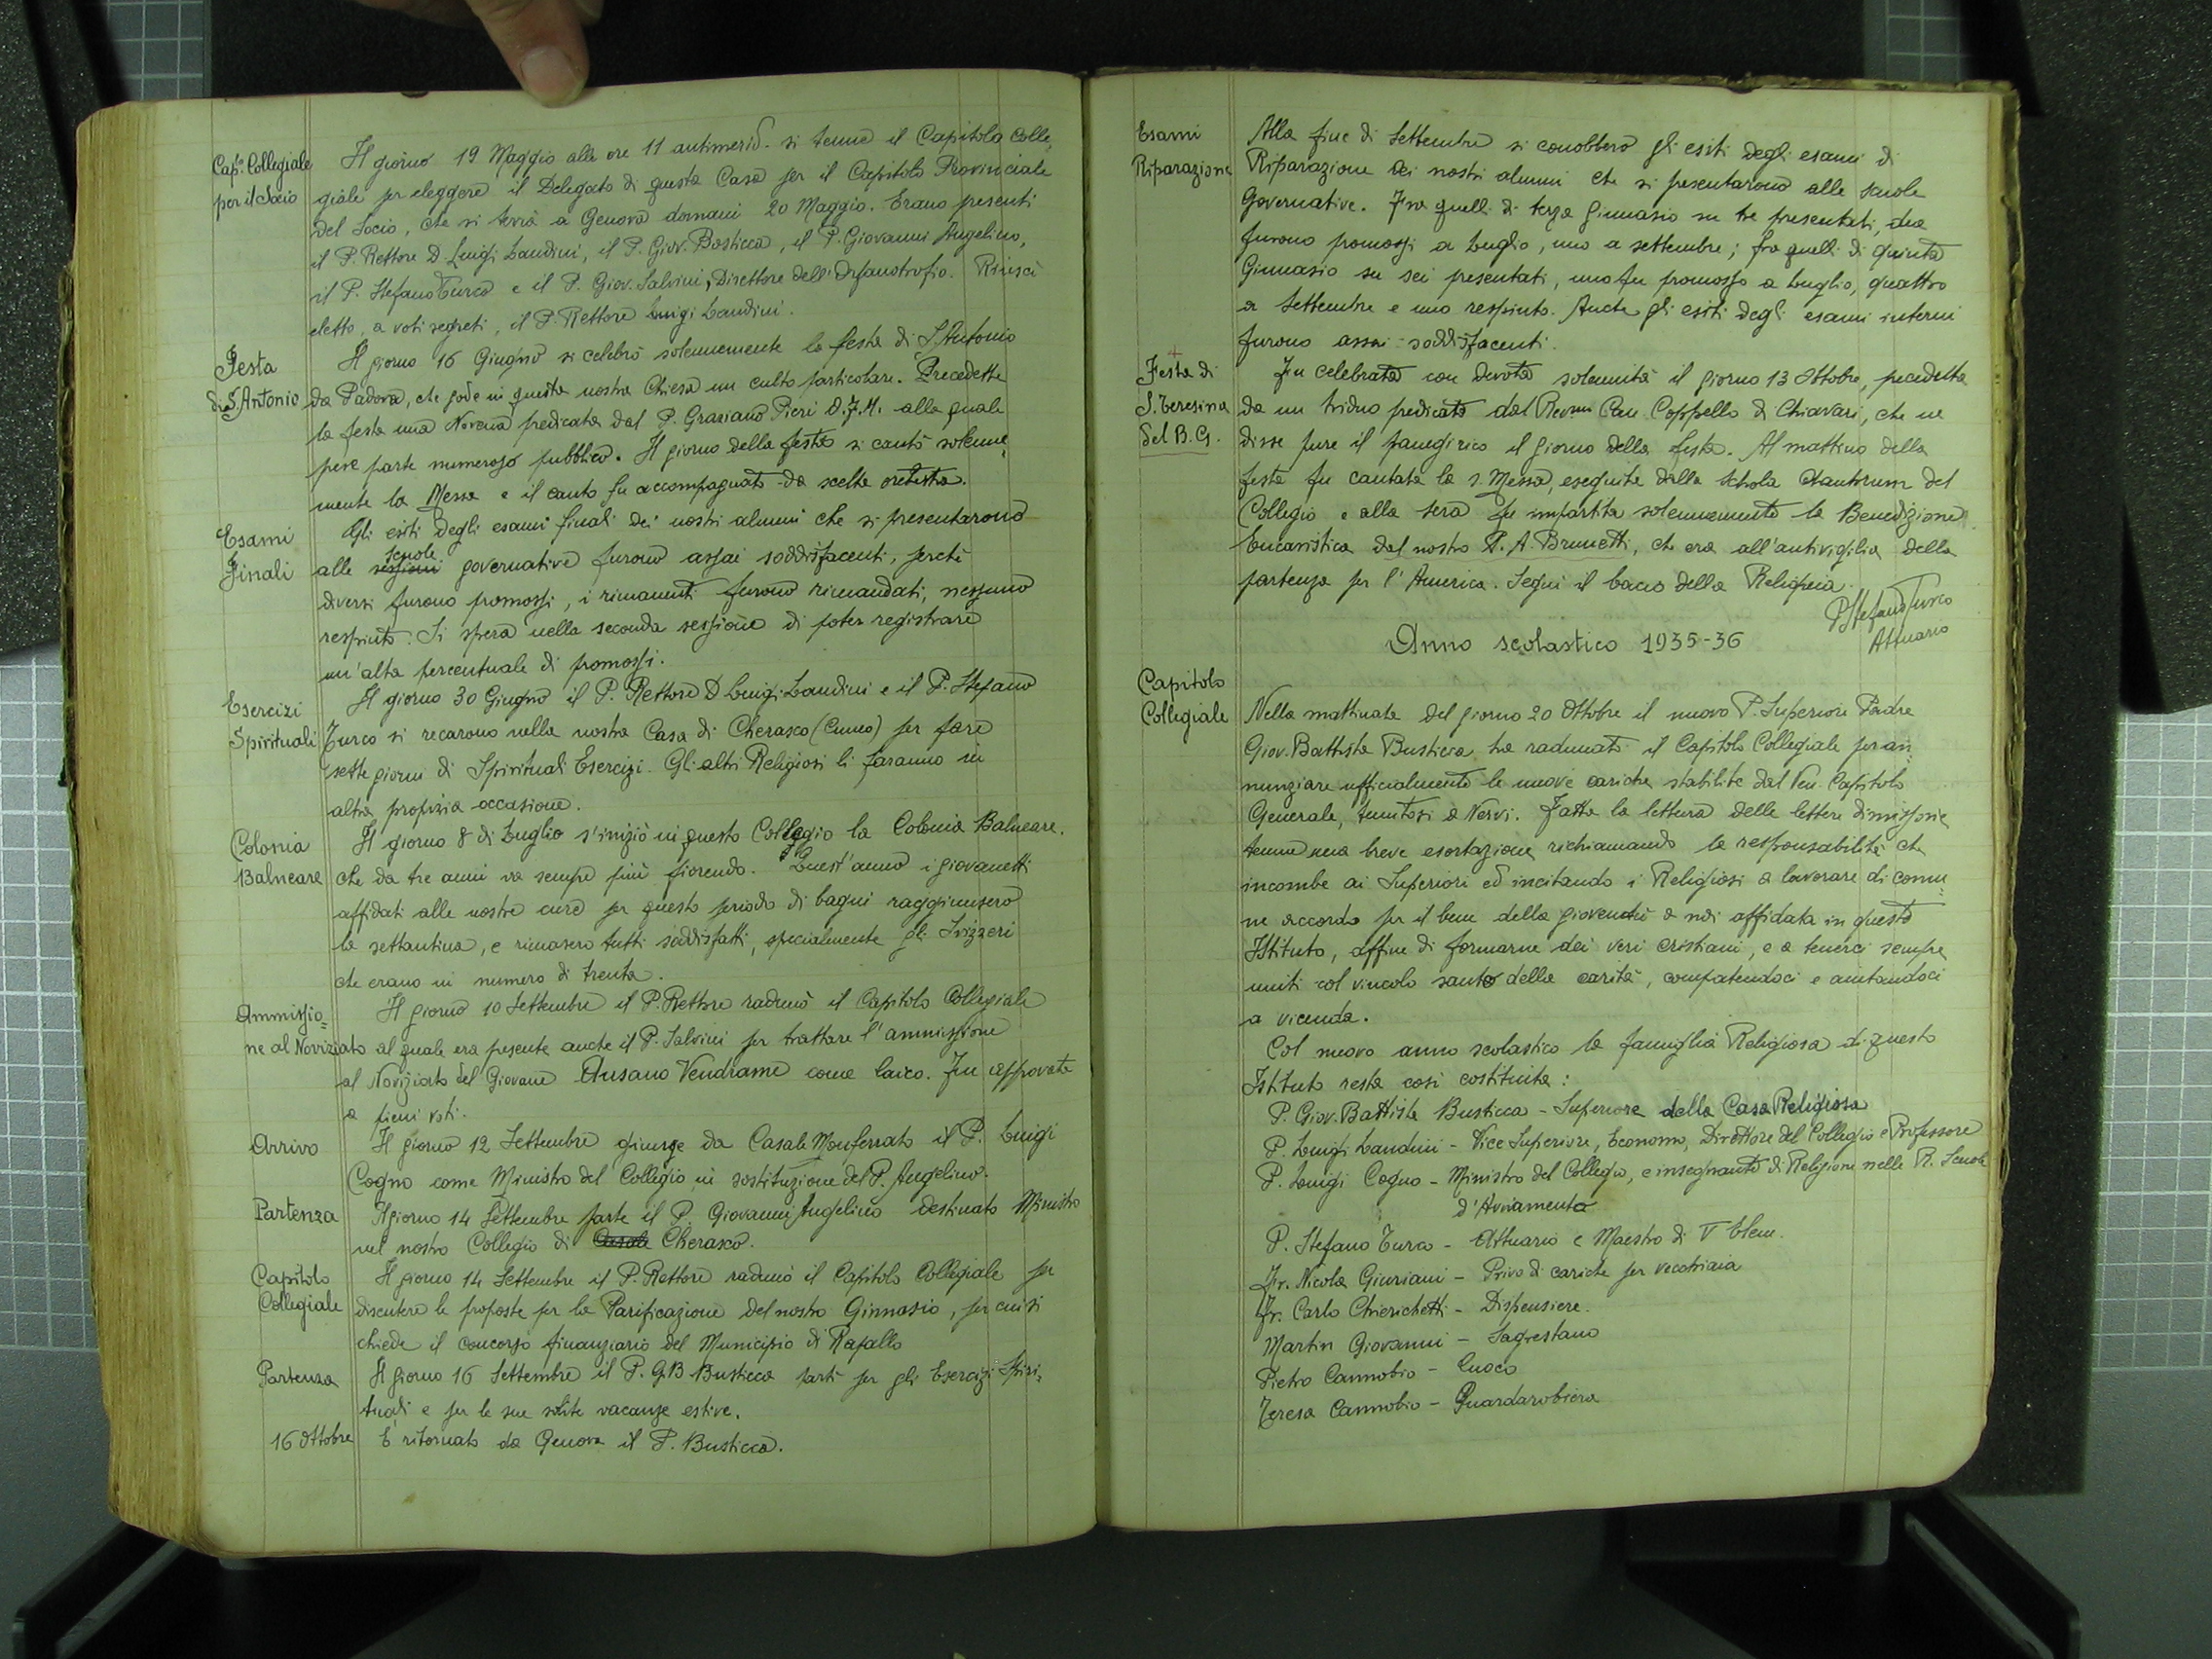 Cap.º Collegiale
per il Socio
Il giorno 19 Maggio alle ore 11 antimerid. si tenne il Capitolo Colle,
giale per eleggere il Delegato di questa Casa per il Capitolo Provinciale
del Socio, che si terrà a Genova domani 20 Maggio. Erano presenti
il P. Rettore D Luigi Landini, il P. Giov. Busticca, il P. Giovanni Angelino,
il P. Stefano Turco e il P. Giov. Salvini, Direttore dell'Orfanotrofio. Riuscì
eletto, a voti segreti, il P. Rettore Luigi Landini.
Festa
di S. Antonio
Il giorno 16 Giugno si celebrò solennemente la festa di S. Antonio
da Padova, che gode in questa nostra Chiesa un culto particolare. Precedette
la festa una Novena predicata dal P. Graziano Pieri O.F.M. alla quale
parte numeroso pubblico. Il giorno della festa si cantò solenne,
mente la Messa e il canto fu accompagnato da scelta orchestra.
Esami
Finali
Gli esiti degli esami finali dei nostri alunni che si presentarono
alle sessioni scuole governative furono assai soddisfacenti, perchè
diversi furono promossi, i rimanenti furono rimandati, nessuno
respinto. Si spera nella seconda sessione di poter registrare
un'alta percentuale di promossi.
Esercizi
Spirituali
Il giorno 30 Giugno il P. Rettore D Luigi Landini e il P. Stefano
Turco si recarono nella nostra Casa di Cherasco (Cuneo) per fare
sette giorni di Spirituali Esercizi. Gli altri Religiosi li faranno in
altra propizia occasione.
Colonia
Balneare
Il giorno 8 di Luglio s'iniziò in questo Collegio la Colonia Balneare,
che da tre anni va sempre più fiorendo. Quest'anno i giovanetti
affidati alle nostre cure per questo periodo di bagni raggiunsero
la settantina, e rimasero tutti soddisfatti, specialmente gli Svizzeri
che erano in numero di trenta.
Ammissio=
ne al Noviziato
Il giorno 10 Settembre il P. Rettore radunò il Capitolo Collegiale
al quale era presente anche il P. Salvini per trattare l'ammissione
al Noviziato del Giovane Ausano Vendrame come laico. Fu approvato
a pieni voti.
Arrivo
Il giorno 12 Settembre giunse da Casale Monferrato il P. Luigi
Cogno come Ministro del Collegio in sostituzione del P. Angelino.
Partenza
Il giorno 14 Settembre parte il P. Giovanni Angelino destinato Ministro
nel nostro Collegio di Casale Cherasco.
Capitolo
Collegiale
Il giorno 14 Settembre il P. Rettore radunò il Capitolo Collegiale per
discutere le proposte per la Parificazione del nostro Ginnasio, per cui si
chiede il concorso finanziario del Municipio di Rapallo
Partenza
Il giorno 16 Settembre il P. G.B Busticca partì per gli Esercizi Spiri,
tuali e per le sue solite vacanze estive.
16 Ottobre
È ritornato da Genova il P. Busticca.
Esami
Riparazione
Alla fine di Settembre si conobbero gli esiti degli esami di
Riparazione dei nostri alunni che si presentarono alle scuole
Governative. Fra quelli di terza ginnasio su tre presentati, due
furono promossi a Luglio, uno a settembre; fra quelli di quinta
Ginnasio su sei presentati, uno fu promosso a Luglio, quattro
a Settembre e uno respinto. Anche gli esiti degli esami interni
furono assai soddisfacenti.
Festa di
S. Teresina
del B. G.
Fu celebrata con devota solennità il giorno 13 Ottobre, preceduta
da un triduo predicato dal Revmo Can. Coppello di Chiavari, che ne
disse pure il panegirico il giorno della festa. Al mattino della
festa fu cantata la s. Messa, eseguita dalla Schola Cantorum del
Collegio e alla sera fu impartita solennemente la Benedizione
Eucaristica dal nostro P. A. Brunetti, che era all'antivigilia della
partenza per l'America. Seguì il bacio della Reliquia.
P Stefano Turco
Attuario
Anno scolastico 1935-36
Capitolo
Collegiale
Nella mattinata del giorno 20 Ottobre il nuovo P. Superiore Padre
Giov. Battista Busticca, ha radunato il Capitolo Collegiale per an,
nunziare ufficialmente le nuove cariche stabilite dal Ven. Capitolo
Generale, tenutosi a Nervi. Fatta la lettura delle lettere dimissorie
tenne una breve esortazione, richiamando la responsabilità che
incombe ai Superiori ed incitando i Religiosi a lavorare di comu=
ne accordo per il bene della gioventù a noi affidata in questo
Istituto, affine di formarne dei veri cristiani, e a tenerci sempre
uniti col vincolo santo della carità, compatendoci e aiutandoci
a vicenda.
Col nuovo anno scolastico la famiglia Religiosa di questo
Istituto resta così costituita:
P. Giov. Battista Busticca - Superiore della Casa Religiosa
P. Luigi Landini - Vice Superiore, Economo, Direttore del Collegio e Professore
P. Luigi Cogno - Ministro del Collegio, e insegnante di Religione nelle R. Scuole
d'Avviamento
P. Stefano Turco - Attuario e Maestro di V Elem.
Fr. Nicola Giuriani - Privo di cariche per vecchiaia
Fr. Carlo Chierichetti - Dispensiere.
Martin Giovanni - Sagrestano
Pietro Cannobio - Cuoco
Teresa Cannobio - Guardarobiera